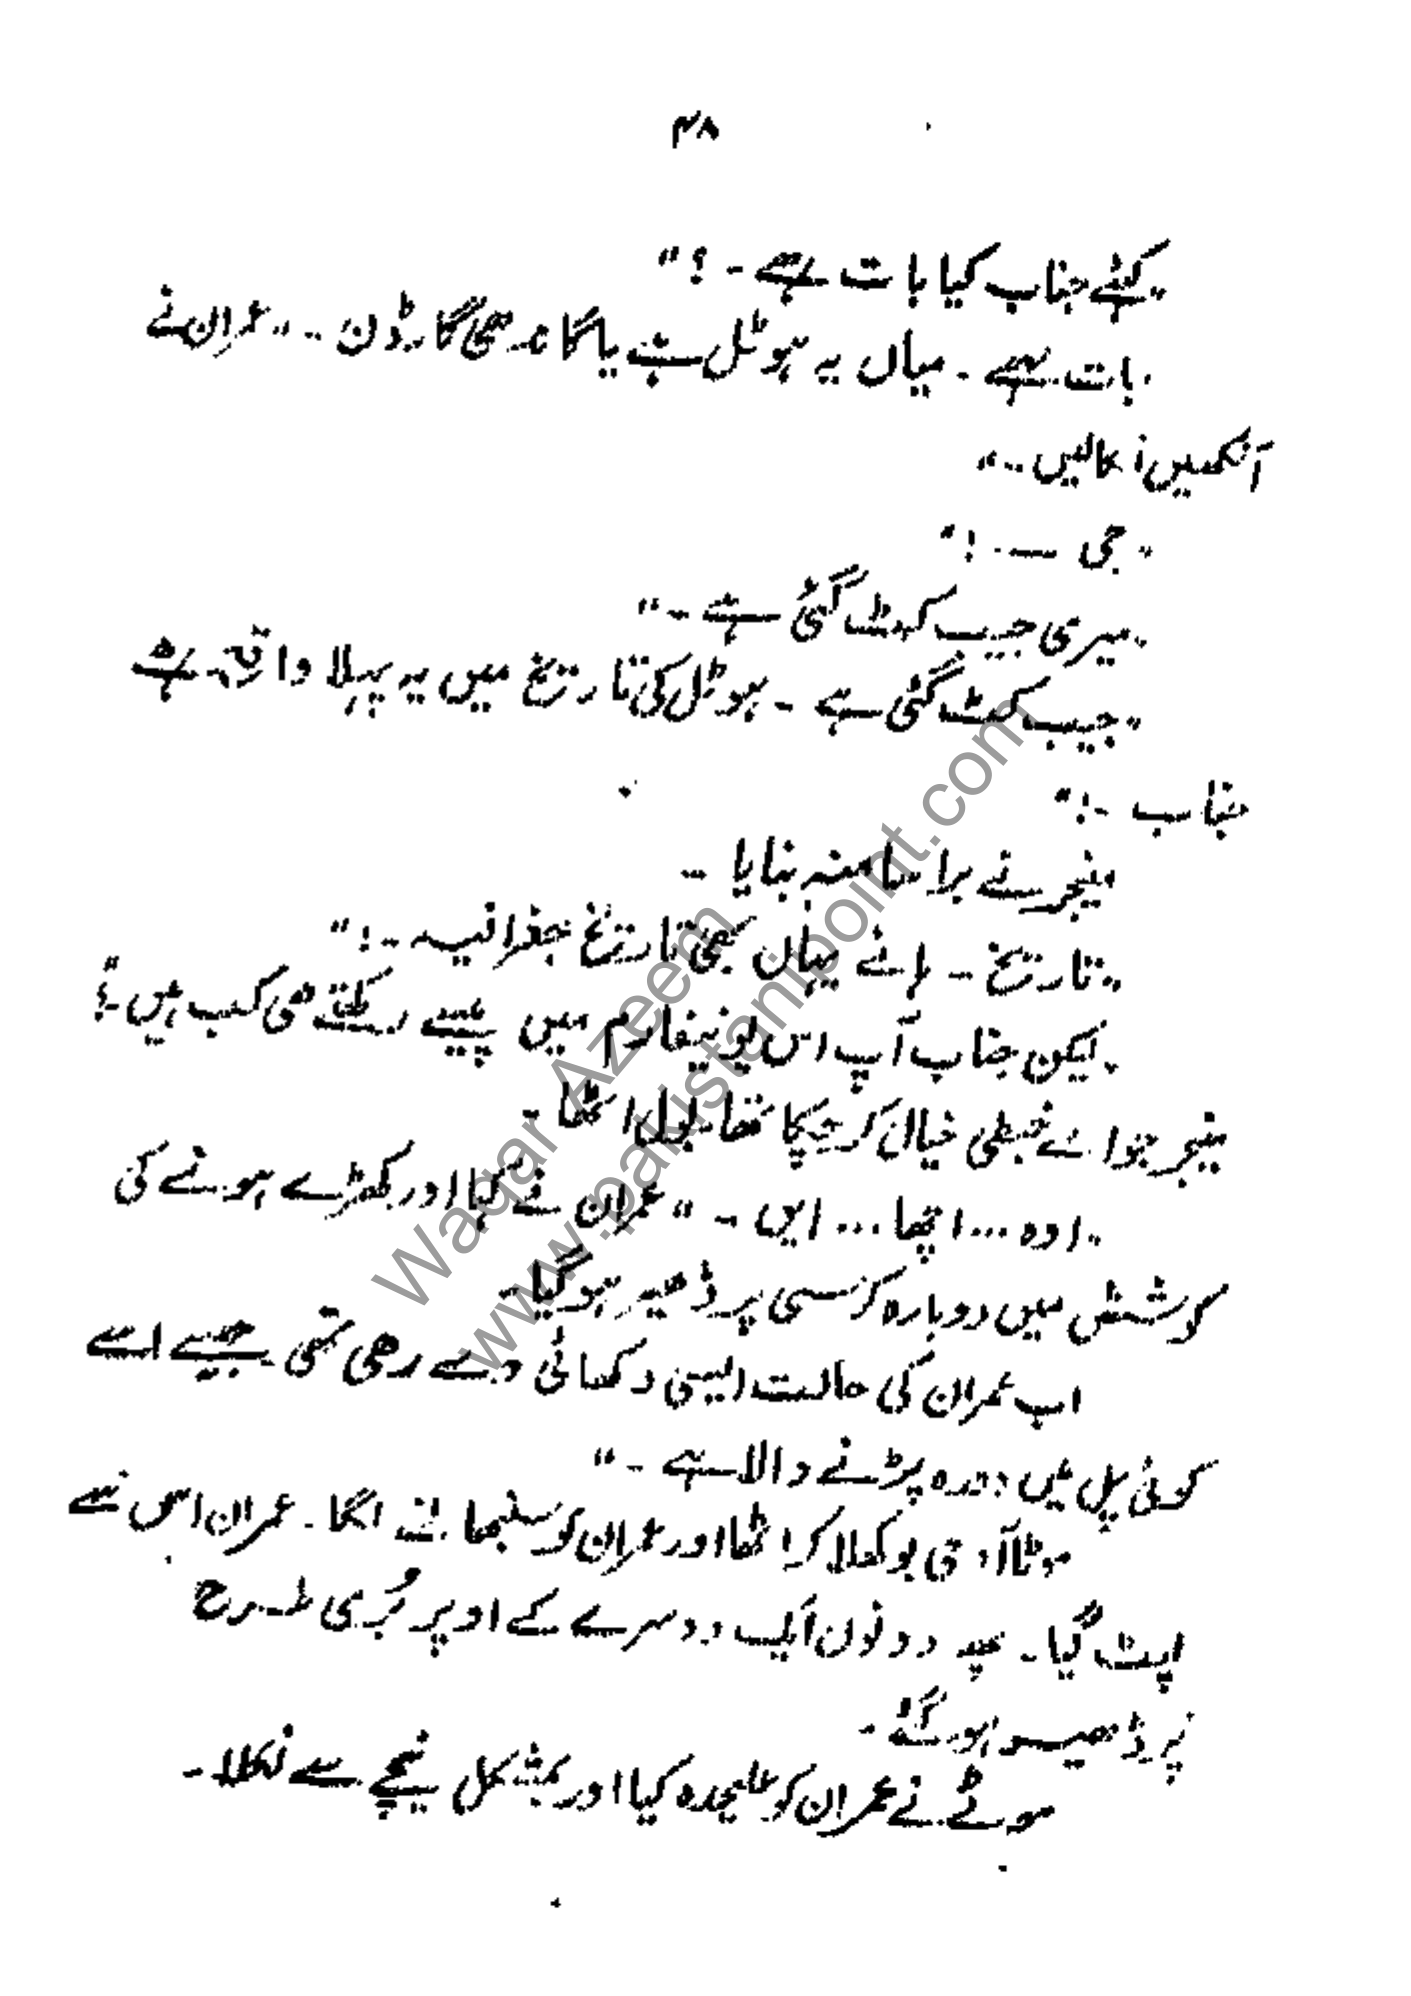 ۴۸
"کہئے جناب کیا بات ہے ۔ ؟"
"بات ہے ۔ میاں یہ ہوٹل ہے یا گاندھی گارڈن ۔۔" عمران نے
آنکھیں نکالیں ۔۔"
"جی — ۔ !"
"میری جیب کٹ گئی ہے ۔۔"
"جیب کٹ گئی ہے ۔ ہوٹل کی تاریخ میں یہ پہلا واقعہ ہے
جناب ۔ !"
مینجر نے برا سا منہ بنایا ۔۔
"تاریخ ۔ ہائے یہاں بھی تاریخ جغرافیہ ۔ !"
"لیکن جناب آپ اس یونیفارم میں پیسے رکھتے ہی کب ہیں ۔ ؟"
مینجر جو اسے خبطی خیال کر چکا تھا بول اٹھا ۔
"اوہ ... اچھا ... ایں ۔۔" عمران نے کہا اور کھڑے ہونے کی
کوشش میں دوبارہ کرسی پر ڈھیر ہو گیا ۔
اب عمران کی حالت ایسی دکھائی دے رہی تھی جیسے اسے
کوئی پل میں دورہ پڑنے والا ہے ۔"
موٹا آدمی بوکھلا کر اٹھا اور عمران کو سنبھالنے لگا ۔ عمران اس سے
لپٹ گیا ۔ پھر دونوں ایک دوسرے کے اوپر بُری طرح
پر ڈھیر ہو گئے ۔
موٹے نے عمران کو علیحدہ کیا اور بمشکل نیچے سے نکلا ۔
Waqar Azeem
www.pakistanipoint.com